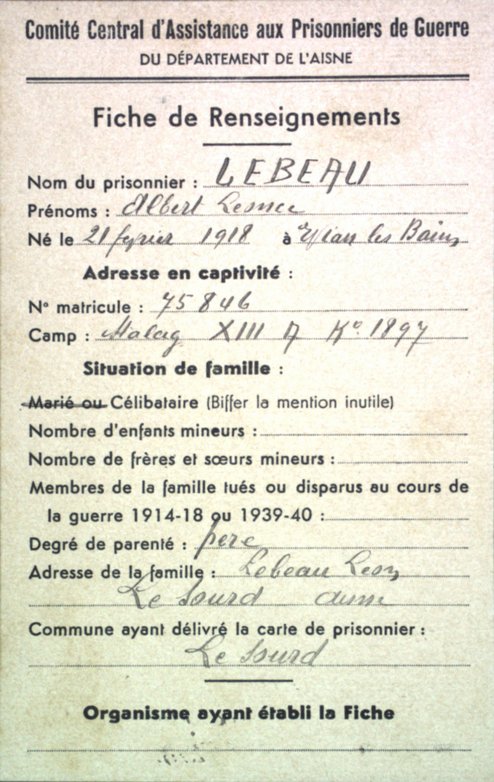 Comité Central d'Assistance aux Prisonniers de Guerre
DU DÉPARTEMENT DE L'AISNE
Fiche de Renseignements
Nom du prisonnier : LEBEAU
Prénoms : Albert
Né le 21 février 1918 à Evian les Bains
Adresse en captivité :
N° matricule : 75846
Camp : Stalag XIII A Ko 1897
Situation de famille :
Marié ou Célibataire (Biffer la mention inutile)
Nombre d'enfants mineurs :
Nombre de frères et sœurs mineurs :
Membres de la famille tués ou disparus au cours de
la guerre 1914-18 ou 1939-40 :
Degré de parenté : père
Adresse de la famille : Lebeau Leon
Le Sourd aisne
Commune ayant délivré la carte de prisonnier :
Le Sourd
Organisme ayant établi la Fiche